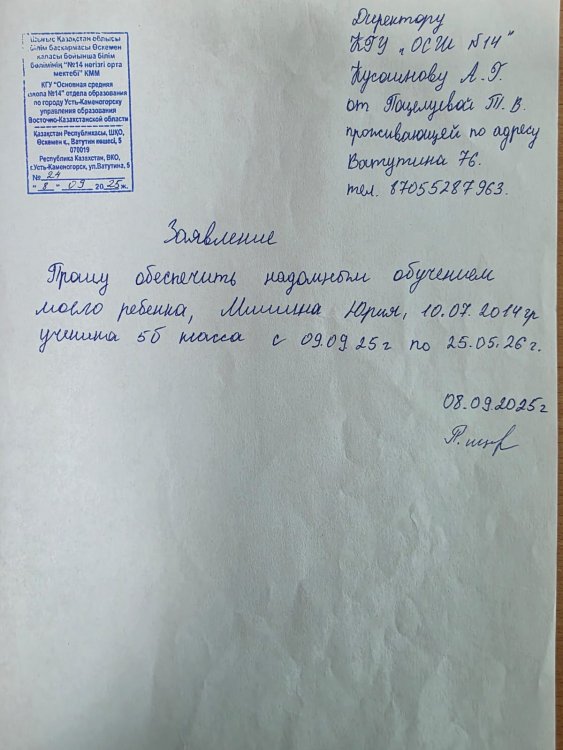 Шығыс Қазақстан облысы
білім басқармасы Өскемен
қаласы бойынша білім
бөлімінің "№14 негізгі орта
мектебі" КММ
КГУ "Основная средняя
школа №14" отдела образования
по городу Усть-Каменогорску
управления образования
Восточно-Казахстанской области
Қазақстан Республикасы, ШҚО,
Өскемен қ., Ватутин көшесі, 5
070019
Республика Казахстан, ВКО,
г.Усть-Каменогорск, ул.Ватутина, 5
№ 24
"8" 09 2025 ж.
Директору
КГУ „ОСШ №14"
Кусаинову А.Г.
от Поцелуевой Т.В.
проживающей по адресу
Ватутина 76.
тел. 87055287963.
Заявление
Прошу обеспечить надомным обучением
моего ребенка, Мишина Юрия, 10.07.2014гр
ученика 5б класса с 09.09.25г по 25.05.26г.
08.09.2025г